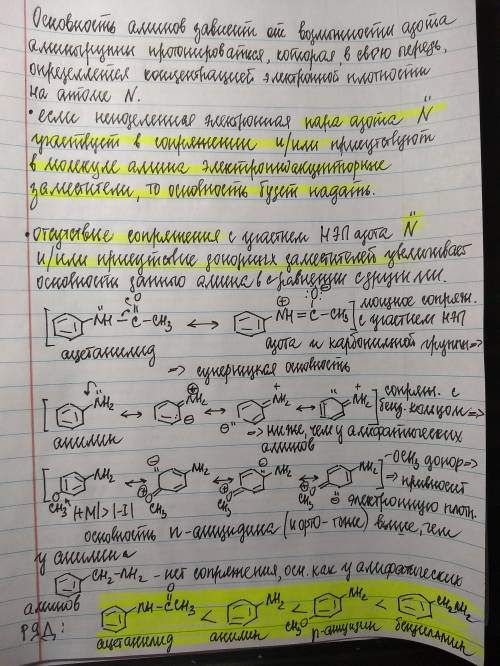 Основность аминов зависит от возможности азота
аминогруппы протонироваться, которая, в свою очередь,
определяется концентрацией электронной плотности
на атоме N.
• если неподеленная электронная пара азота N̈
участвует в сопряжении и/или присутствуют
в молекуле амина электроноакцепторные
заместители, то основность будет падать.
• отсутствие сопряжения с участием НЭП азота N̈
и/или присутствие донорных заместителей увеличивает
основность данного амина в сравнении с другими.
NH — C — CH₃ ↔ NH = C — CH₃ мощное сопряж.
O ⊕ с участием НЭП
ацетанилид азота и карбонильной группы =>
=> супернизкая основность
NH₂ ↔ NH₂ ↔ NH₂ ↔ NH₂ сопряж. с
⊕ ⊖ + ⊖ + бенз. кольцом =>
анилин => ниже, чем у алифатических
аминов
NH₂ ↔ NH₂ ↔ NH₂ ↔ NH₂ -OCH₃ донор =>
OCH₃ |+M| > |-I| => привносит
электронную плотн.
основность п-анизидина (и орто- тоже) выше, чем
у анилина
CH₂-NH₂ - нет сопряжения, осн. как у алифатических
аминов
РЯД: NH-C-CH₃ < NH₂ < NH₂ < CH₂NH₂
O CH₃O
ацетанилид анилин п-анизидин бензиламин